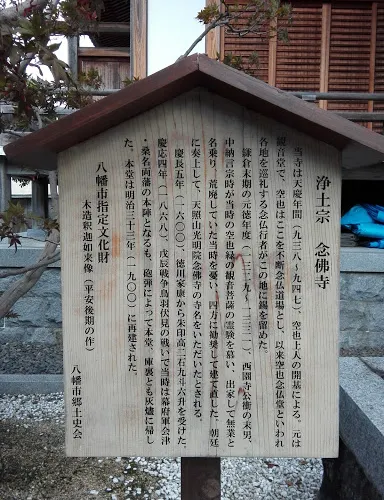 浄土宗　念佛寺
当寺は天慶年間（九三八～九四七）、空也上人の開基による。元は
観音堂で、空也はここを不断念仏道場とし、以来空也念仏堂といわれ
各地を巡礼する念仏行者がこの地に錫を留めた。
鎌倉末期の元徳年度（一三二九～一三三一）、西園寺公衡の末男、
中納言宗時が当時の空也縁の観音菩薩の霊験を慕い、出家して無業と
名乗り、荒廃していた当時を憂い、四方に勧奨して建て直した。朝廷
に奏上して、天照山光明院念佛寺の寺名をいただいたとされる。
慶長五年（一六〇〇）、徳川家康から朱印高二石九斗六升を受けた。
慶応四年（一八六八）、戊辰戦争鳥羽伏見の戦いで当時は幕府軍会津
・桑名両藩の本陣となるも、砲弾によって本堂、庫裏とも灰燼に帰し
た。本堂は明治三十三年（一九〇〇）に再建された。
八幡市指定文化財
木造釈迦如来像（平安後期の作）
八幡市郷土史会